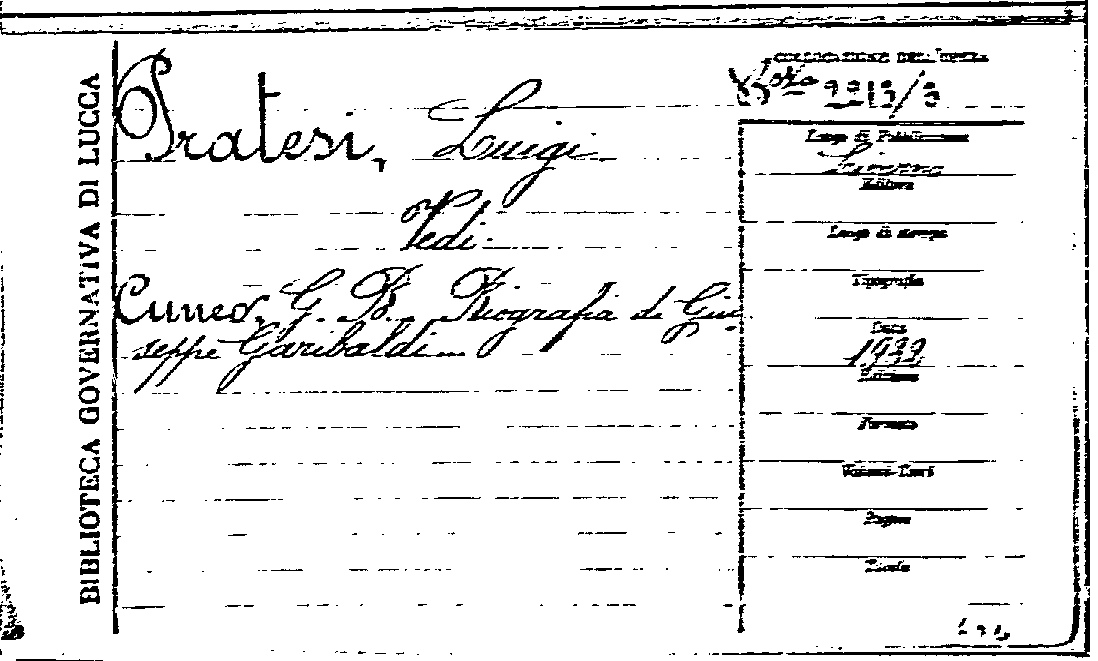 BIBLIOTECA GOVERNATIVA DI LUCCA
Pratesi, Luigi
Vedi:
Cuneo, G. B. Biografia di Giu
seppe Garibaldi
COLLOCAZIONE DELL'OPERA
2213/3
Luogo di Pubblicazione
Livorno
Editore
Luogo di stampa
Tipografia
Data
1932
Edizione
Formato
Volumi-Parti
Pagine
Tavole